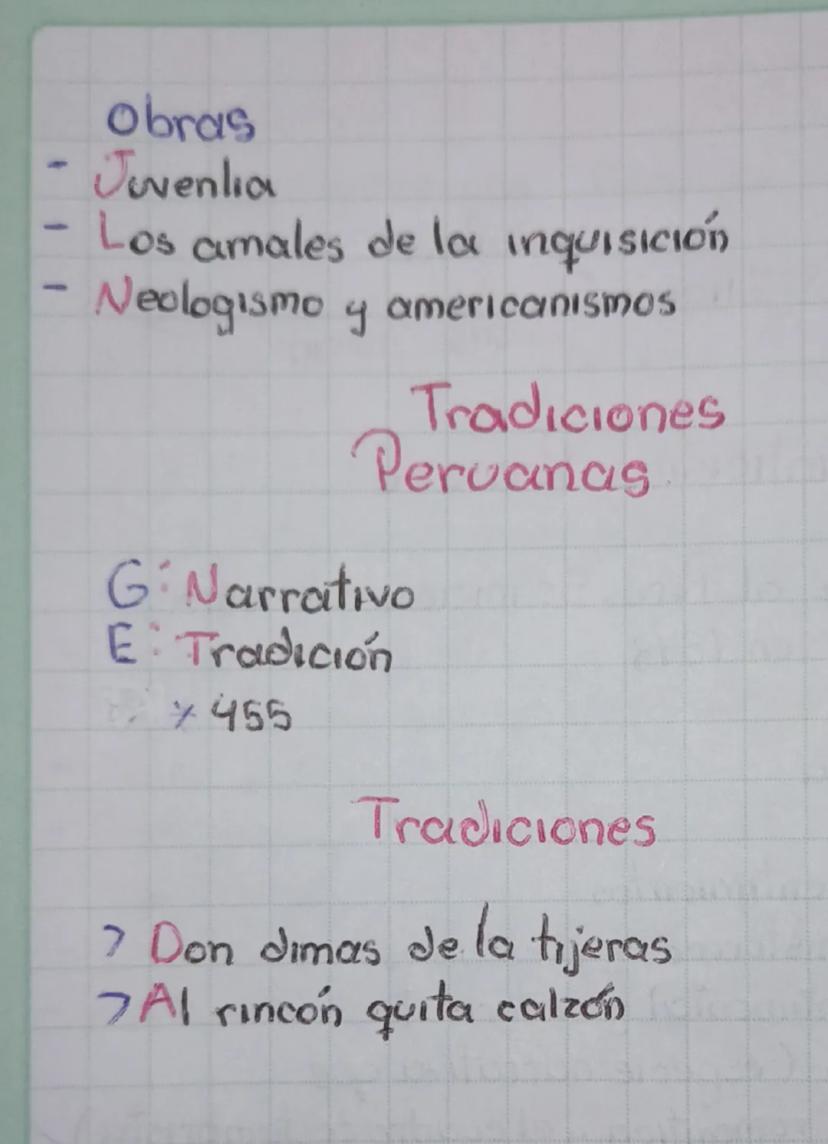 Obras
- Juvenlia
- Los amales de la inquisición
- Neologismo y americanismos
Tradiciones
Peruanas
G: Narrativo
E: Tradición
* 455
Tradiciones
> Don dimas de la tijeras
> Al rincón quita calzón